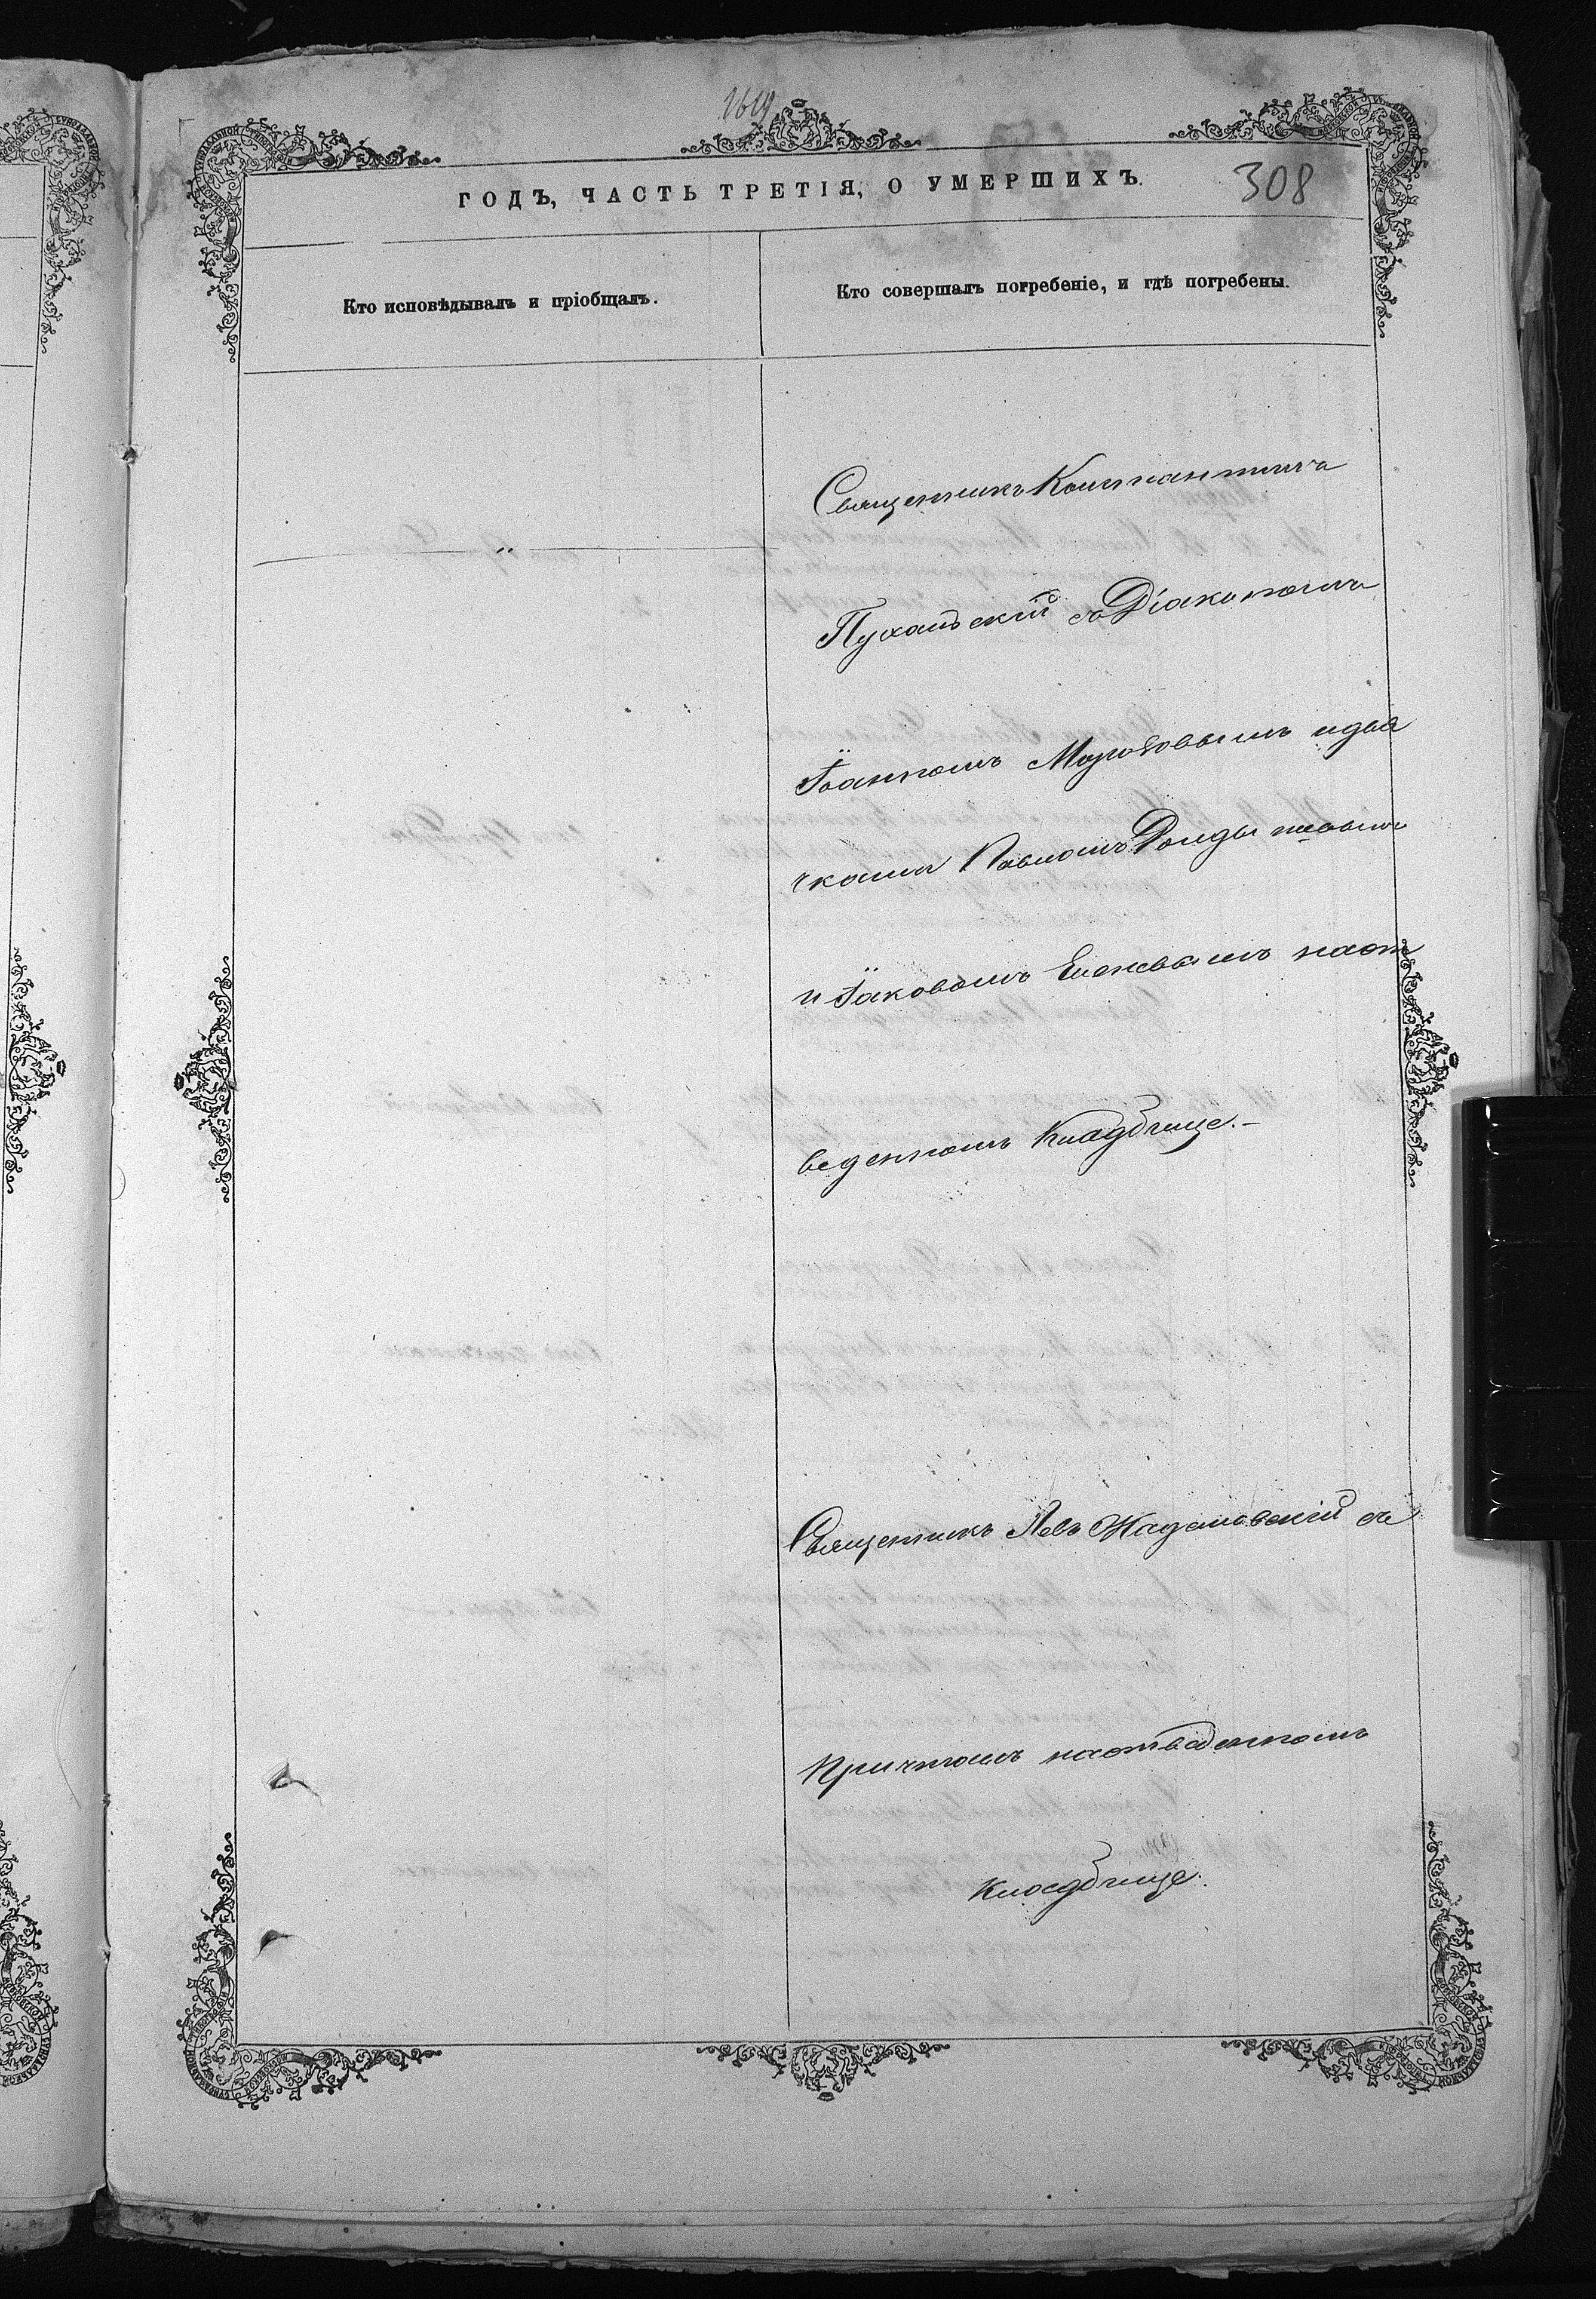 1619
ГОДЪ, ЧАСТЬ ТРЕТІЯ, О УМЕРШИХЪ.
308
Кто исповѣдывалъ и пріобщалъ.
Кто совершалъ погребеніе, и гдѣ погребены.
Священникъ Константинъ
"
съ Діакономъ
Іоанномъ идья
чками Павломъ
и Іаковомъ наот
веденномъ Кладбище.-
Священникъ Левъ съ
Причтомъ наотведенномъ
Кладбище.